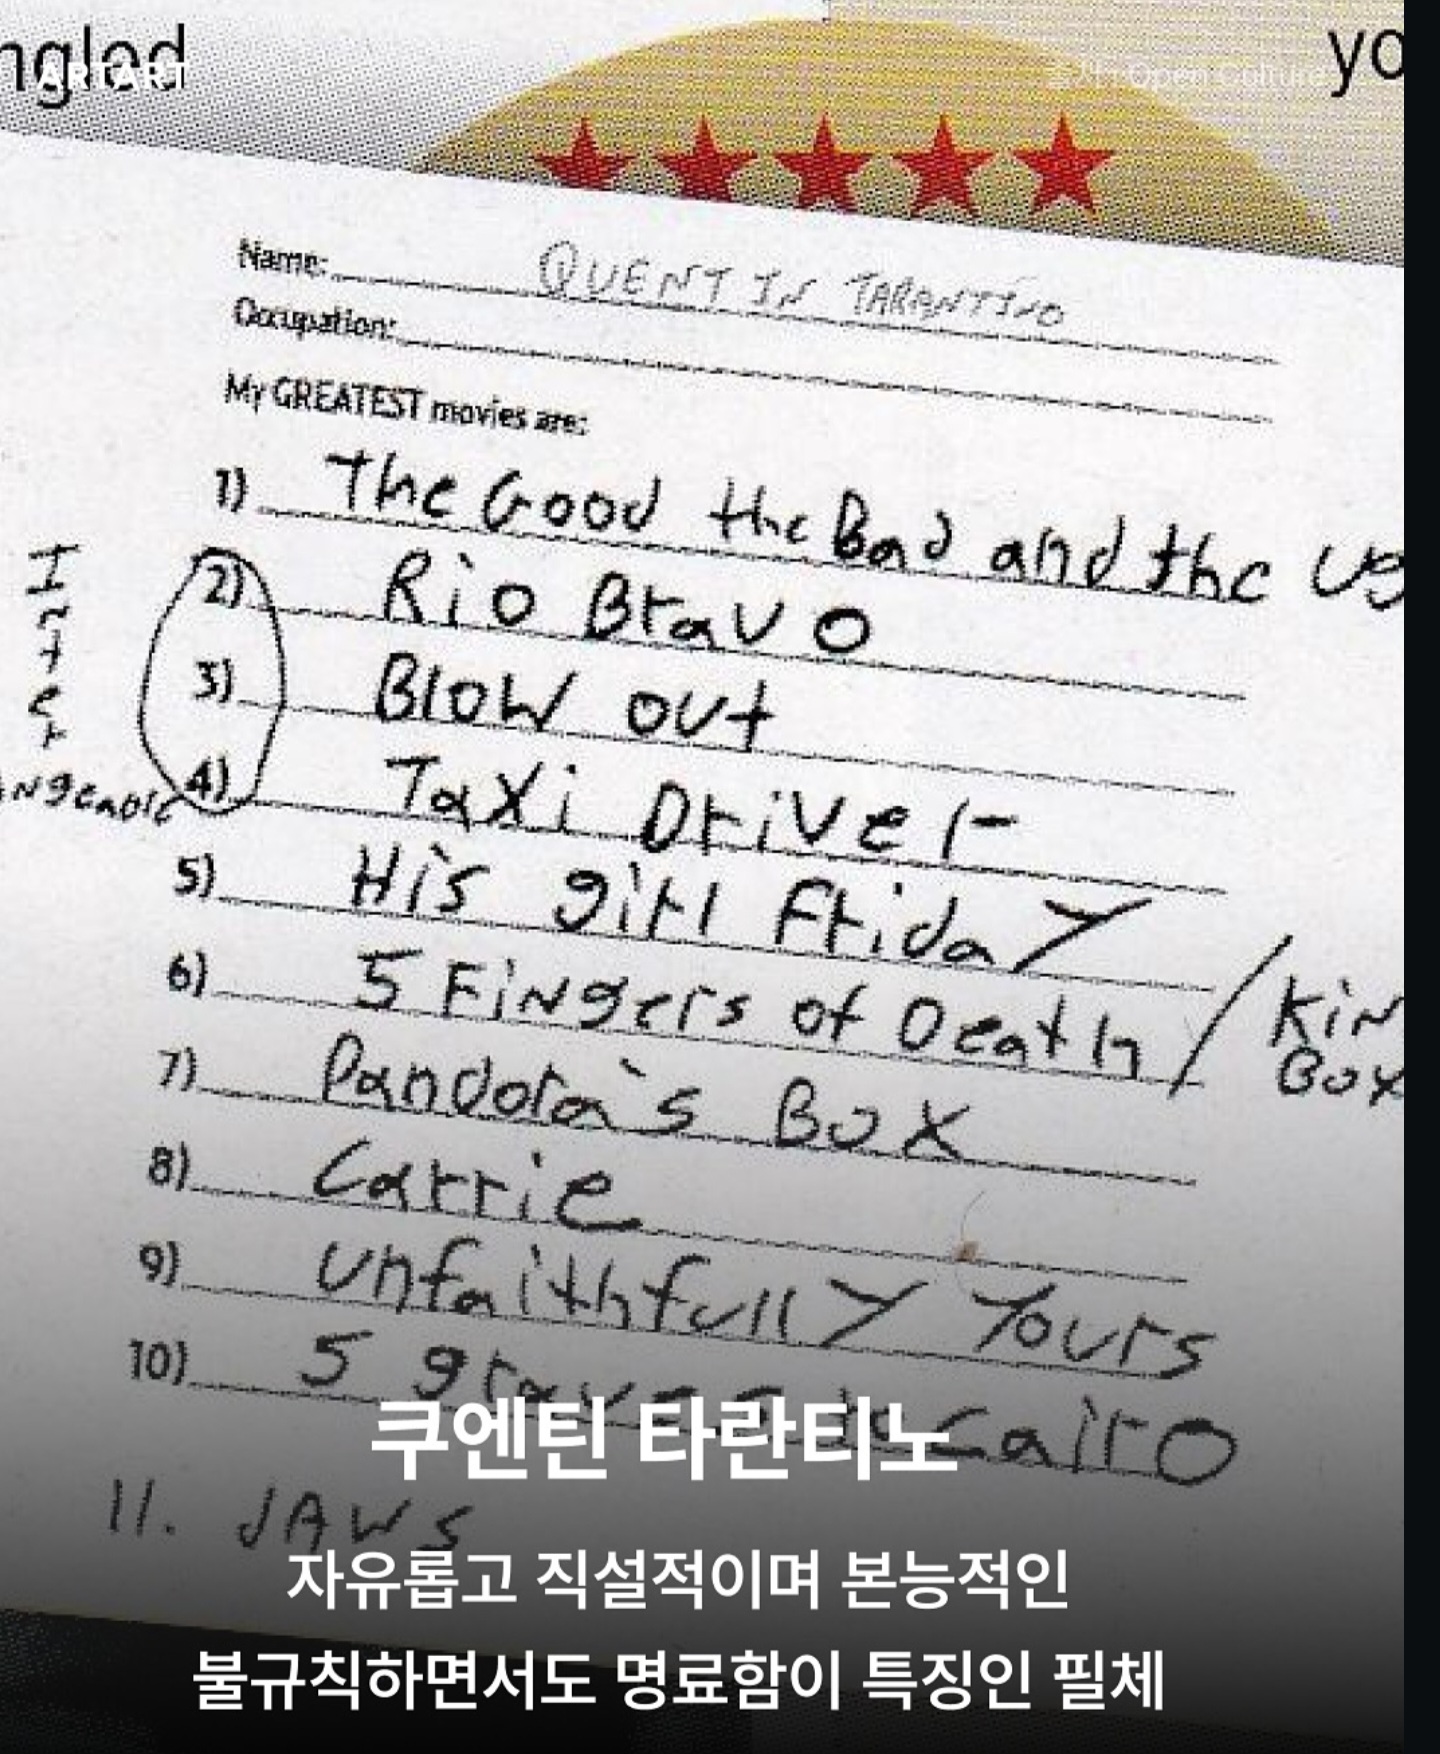 ngled
ARTART
출처: Open Culture
yo
Name: QUENTIN TARANTINO
Occupation:
My GREATEST movies are:
1) The Good the Bad and the Ug
2) Rio Bravo
3) Blow out
4) Taxi Driver
5) His girl Friday
6) 5 Fingers of Death / Kin
Box
7) Pandora's Box
8) Carrie
9) unfaithfully Yours
10) 5 graves to Cairo
11. JAWS
Inter
angeable
쿠엔틴 타란티노
자유롭고 직설적이며 본능적인
불규칙하면서도 명료함이 특징인 필체